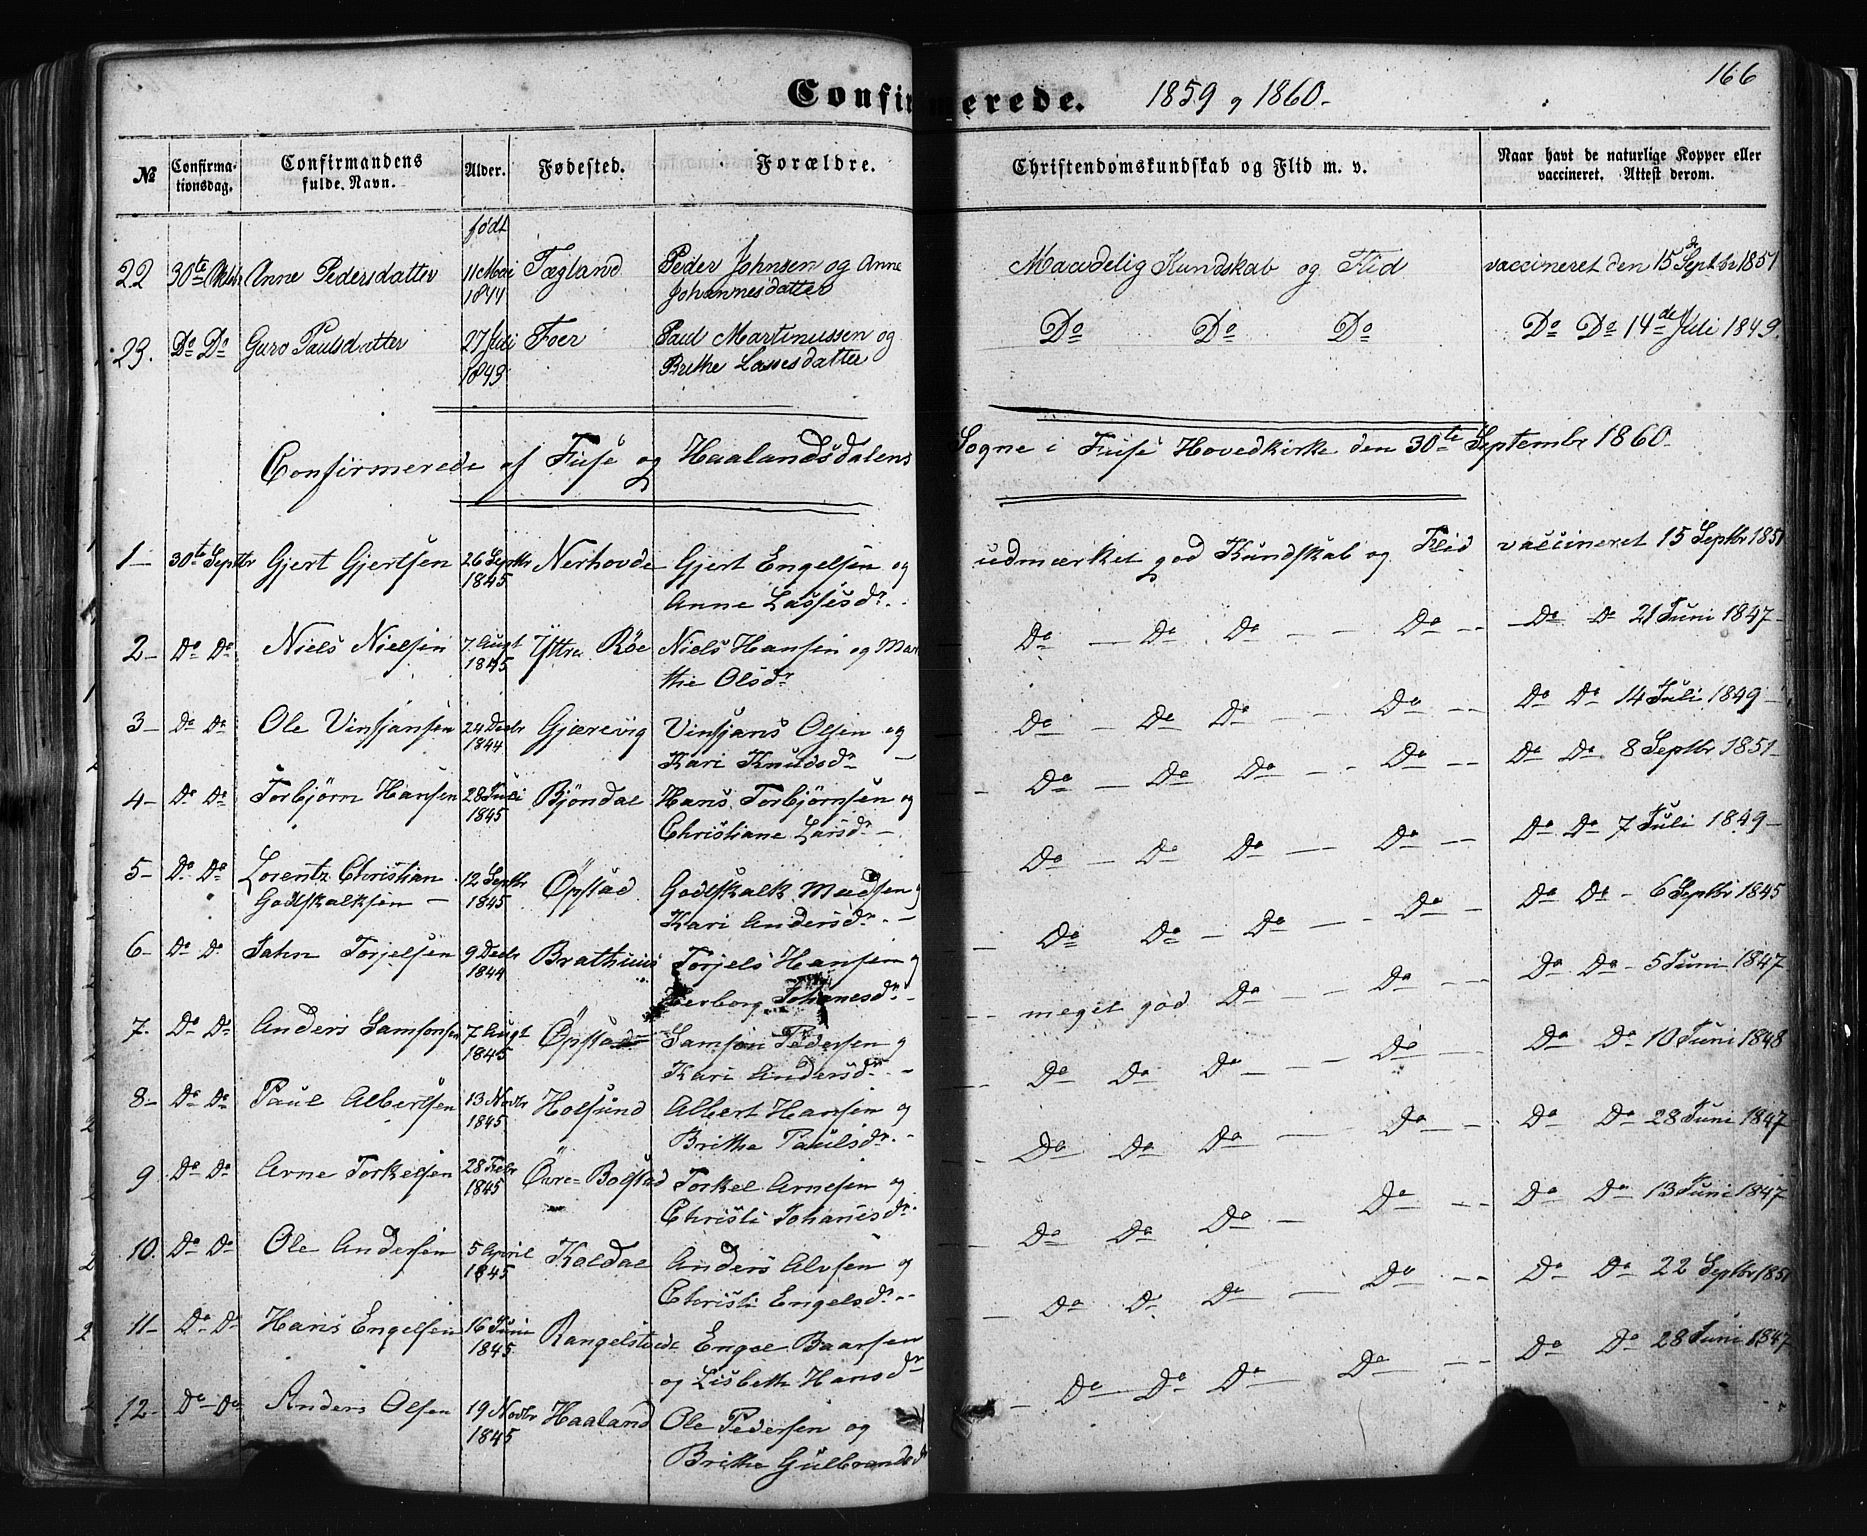 166
Confirmerede. 1859 og 1860.
№ Confirma-tionsdag. Confirmandens fulde Navn. Alder. Fødested. Forældre. Christendomskundskab og Flid m. v. Naar havt de naturlige Kopper eller vaccineret. Attest derom.
født
22 30te Anne Pedersdatter 11 1844 Tægland Peder Johnsen og Anne Maadelig Kundskab og Flid vaccineret den 15de Septbr 1851
Johannesdatter
23. Do Do Guro Paulsdatter 27 Juli Foer Paul Martinussen og Do Do Do Do Do 14de Juli 1849.
1843 Brithe Lassesdatter
Confirmerede af Fuse og Haalandsdalens Sogne i Fuse Hovedkirke den 30te Septembr 1860.
1 – 30te Septbr Gjert Gjertsen 26 Septbr Nerhovde Gjert Engelsen og udmærket god Kundskab og Flid vaccineret 15 Septbr 1851
1845 Anne Lassesdr.
2 – Do Do Niels Nielsen 7 Augt Yttre Røe Niels Hansen og Mar Do – Do Do – – Do – – Do Do 21 Juni 1847 –
1845 the Olsdr
3 – Do Do Ole Vinsjansen 24 Decbr Gjærevig Vinsjans Olsen og Do – Do Do – – Do – – Do Do 14 Juli 1849 –
1844 Kari Knudsdr –
4 – Do Do Torbjørn Hansen 28 Juli Bjöndal Hans Torbjørnsen og – Do – Do Do – – Do – – Do Do 8 Septbr 1851 –
1845 Christiane Larsdr –
5 – Do Do Lorentz Christian 12 Septbr Öpstad Godskalk Madsen og Do – Do Do – – Do – – Do Do 7 Juli 1849 –
Godskalksen – 1845 Kari Andersdr. –
6 – Do Do Jahn Torjelsen 9 Decbr Brathuus Torjels Hansen og – Do Do – Do – – Do – Do Do – 6 Septbr 1845
1844 Herborg Johanesdr. –
7. Do Do Anders Samsonsen 7 Augt Öpstad Samson Pedersen og – – meget god Do – – Do – – Do Do – 5 Juni 1847
1845 Kari Andersdr. –
8 – Do Do Paul Albertsen 13 Novbr Holsund Albert Hansen og – Do Do Do – – Do – – Do Do 10 Juni 1848
1845 Brithe Paulsdr. –
9 Do Do Arne Torkelsen 28 Febr Övre Bolstad Torkel Arnesen og – Do Do Do – Do – – Do Do 28 Juni 1847
1845 Christi Johanesdr. –
10. Do Do Ole Andersen 5 April Koldal Anders Alvsen og – Do Do Do – Do – – Do Do 13 Juni 1847
1845 Christi Engelsdr. –
11 – Do Do Hans Engelsen 16 Juni Engel Baarsen – Do Do Do – Do – – Do Do 22 Septbr 1851
1845 og Lisbeth Hansdr
12 – Do Do Anders Olsen 19 Novbr Haaland Ole Pedersen og – Do – Do Do – Do – – Do Do 28 Juni 1847
1845 Brithe Gulbrandsdr